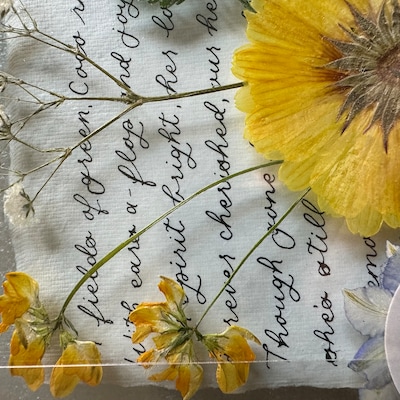 fields of green, Coco r
ith ears a-flop and joy
spirit bright, her lo
rever cherished, our he
Though gone
she's still
emo